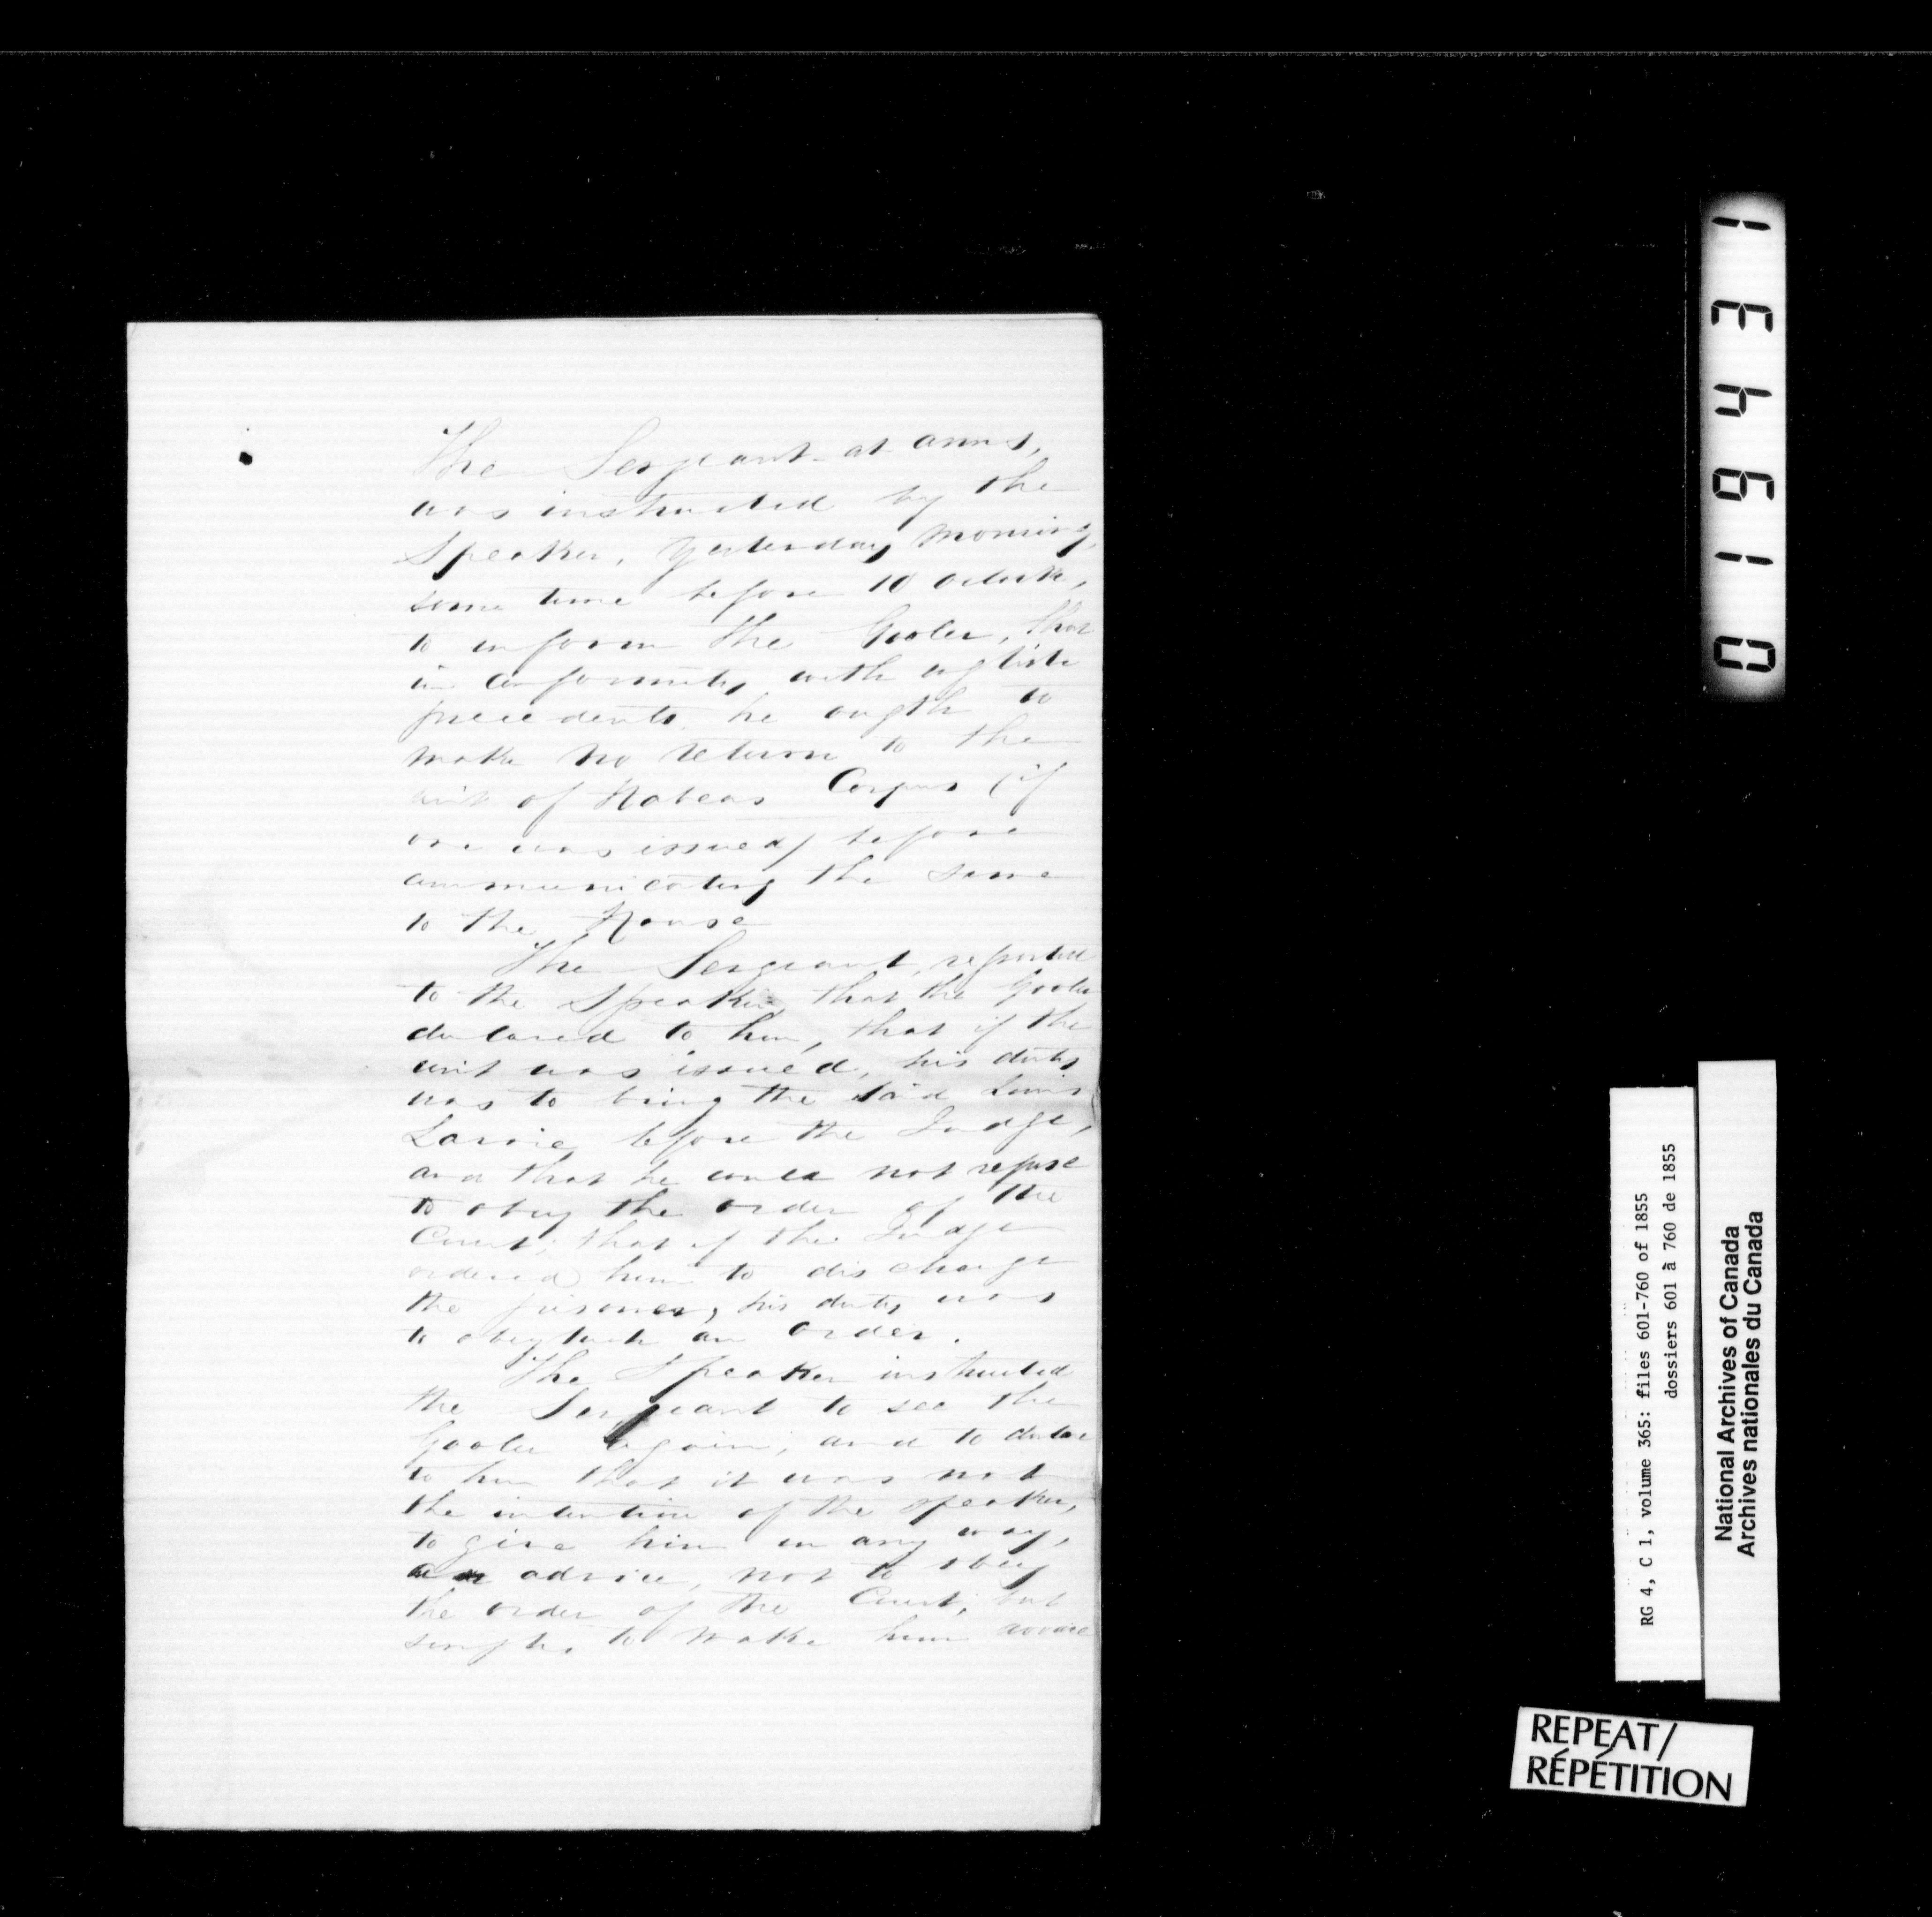 The Sergeant-at arms,
was instructed by the
Speaker, Yesterday morning,
some time before 10 oclock,
to inform the Gaoler, that
in conformity with english
precedents, he ougth to
make no return to the
writ of Habeas Corpus (if
one was issued) before
communicating the same
to the House
The Sergeant, reported
to the Speaker, that the Gaoler
declared to him, that if the
writ was issued, his duty
was to bring the said Louis
Lavoie before the Judge,
and that he could not refuse
to obey the order of the
Court; that if the Judge
ordered him to discharge
the prisoner, his duty was
to obey such an order.
The Speaker instructed
the Sergeant to see the
Gaoler again, and to declare
to him that it was not
the intention of the speaker,
to give him in any way,
an advice, not to obey
the order of the Court; but
simply, to make him aware
013491
RG 4, C 1, volume 365: files 601-760 of 1855
dossiers 601 à 760 de 1855
National Archives of Canada
Archives nationales du Canada
REPEAT/
RÉPÉTITION